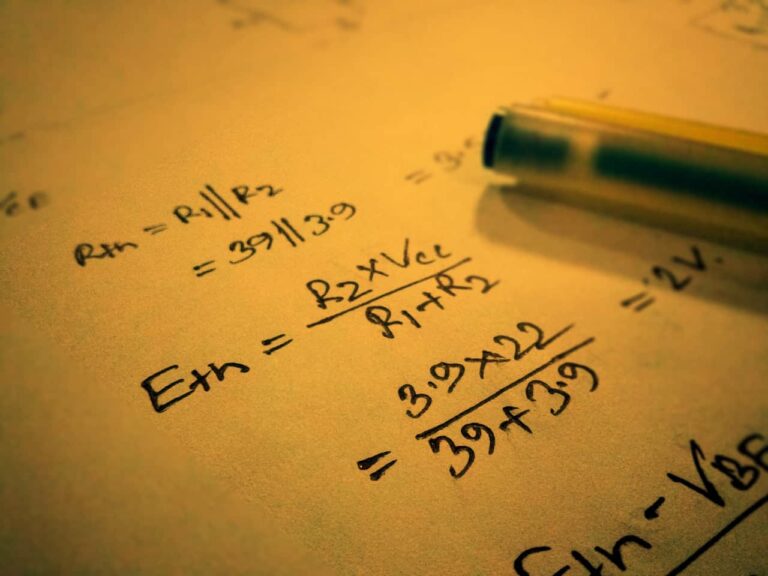 Rth = R1||R2
= 39||3.9
Eth = R2×Vcc
R1+R2
= 3.9×22
39+3.9
= 2V.
Eth-VBE